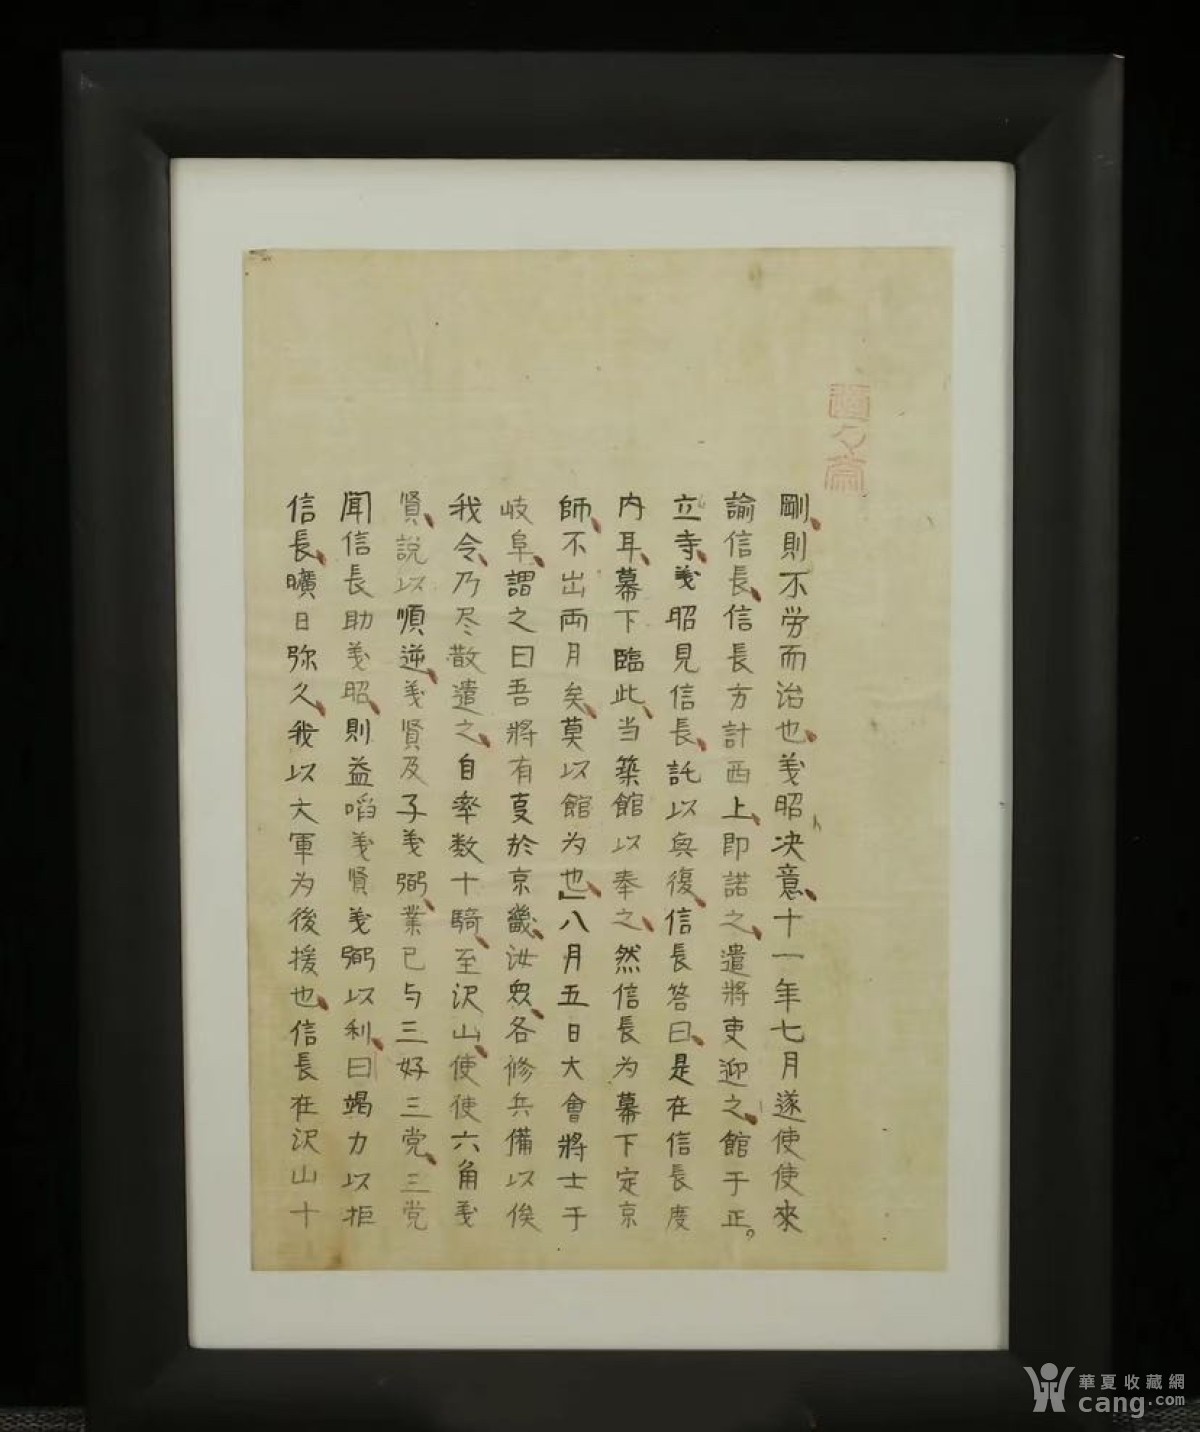 剛、則不労而治也、義昭决意、十一年七月遂使使來
諭信長、信長方計西上、即諾之、遣將吏迎之、館于正。
立寺、義昭見信長、託以興復、信長答曰、是在信長度
内耳、幕下臨此、当築館以奉之、然信長為幕下定京
師、不出両月矣、莫以館為也、」八月五日大會將士于
岐阜、謂之曰吾將有事於京畿、汝衆、各修兵備以俟
我令、乃尽散遣之、自率数十騎、至沢山、使使六角義
賢、説以順逆、義賢及子義弼、業已与三好三党、三党
聞信長助義昭、則益啗義賢義弼以利、曰竭力以拒
信長、曠日弥久、我以大軍為後援也、信長在沢山十
華夏收藏網
cang.com